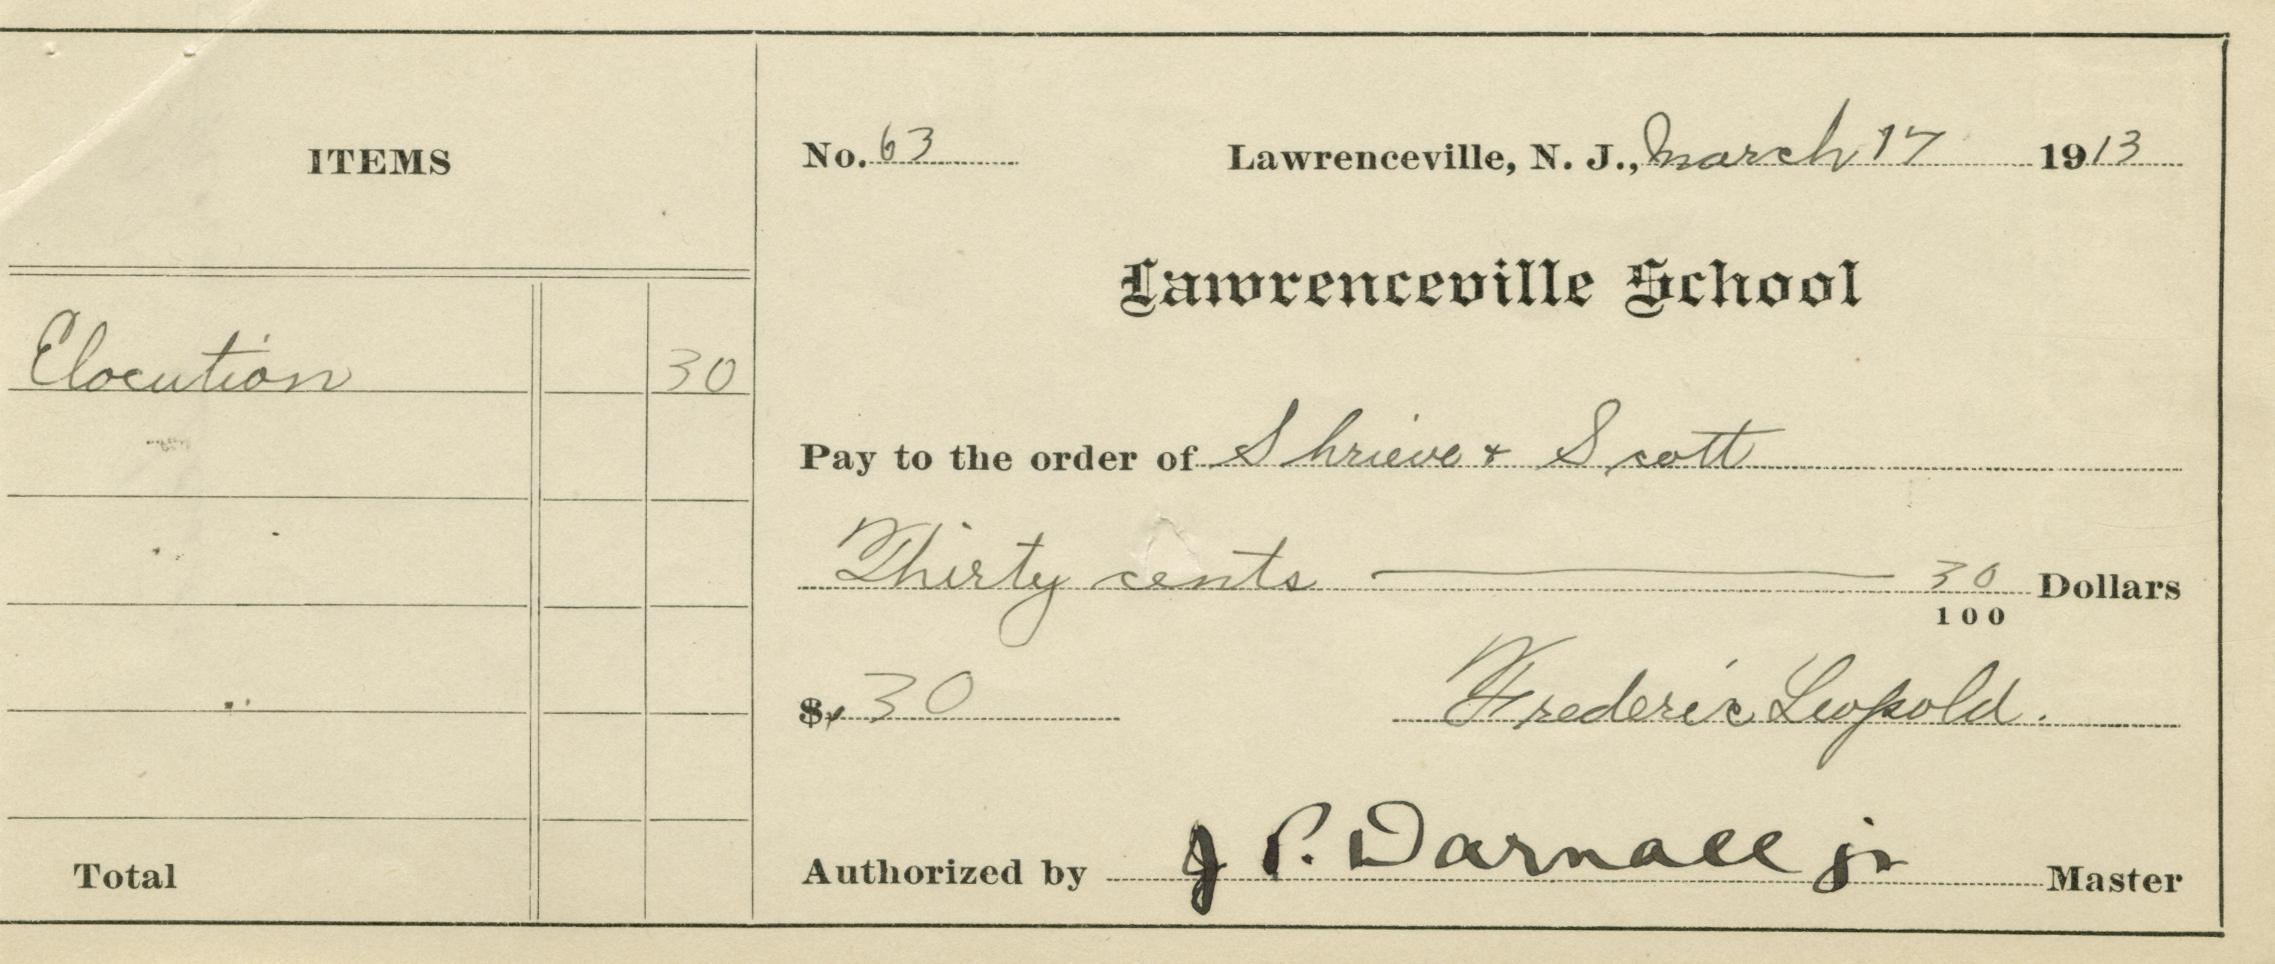 ITEMS
Elocution 30
Total
No. 63 Lawrenceville, N. J., March 17 1913
Lawrenceville School
Pay to the order of Shrieve & Scott
Thirty cents 30/100 Dollars
$.30 Frederic Leopold.
Authorized by J P. Darnall jr Master